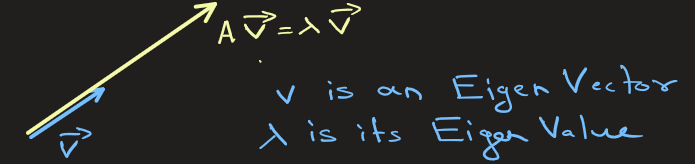 A v⃗ = λ v⃗
v is an Eigen Vector
λ is its Eigen Value
v⃗